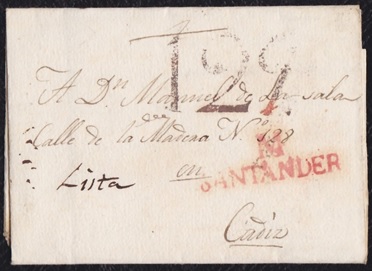 A Dn Manuel de la Sala
Calle de la Marena Nº 128
Lista
en
SANTANDER
Cadiz